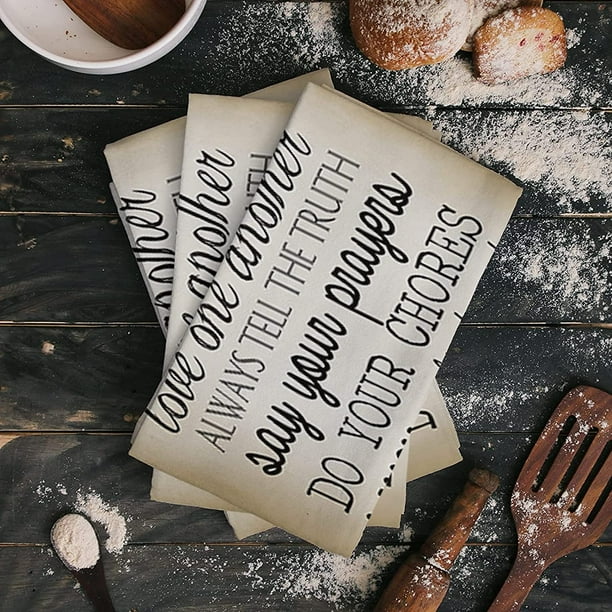 love one another
ALWAYS TELL THE TRUTH
say your prayers
DO YOUR CHORES
another
another